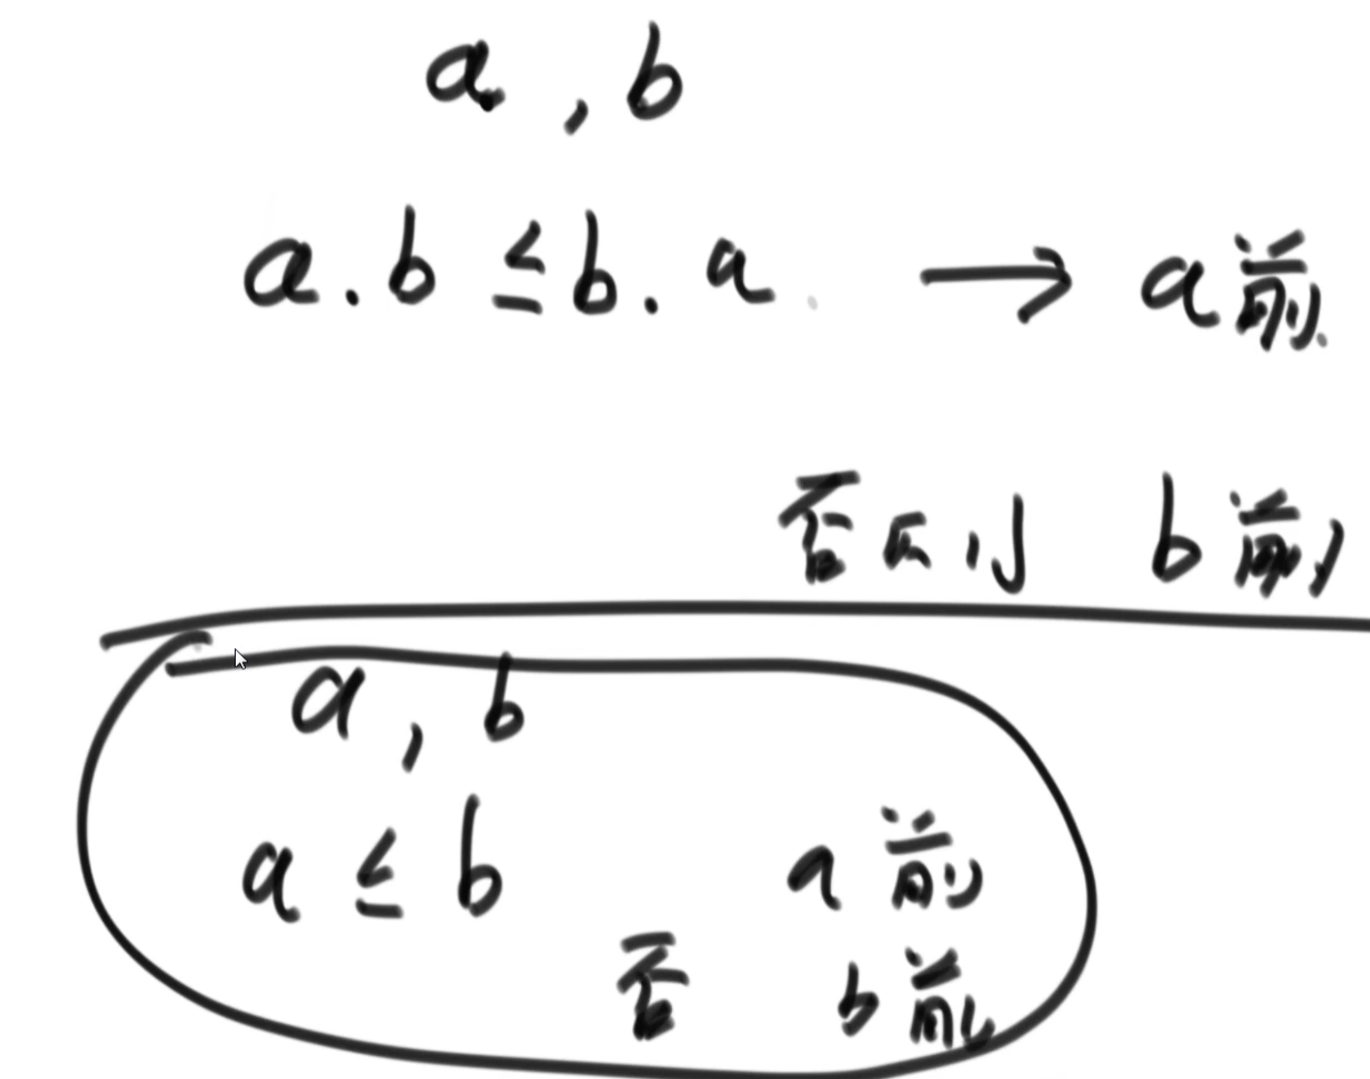 a , b
a.b ≤ b.a → a前
否则 b前
a , b
a ≤ b a前
否 b前